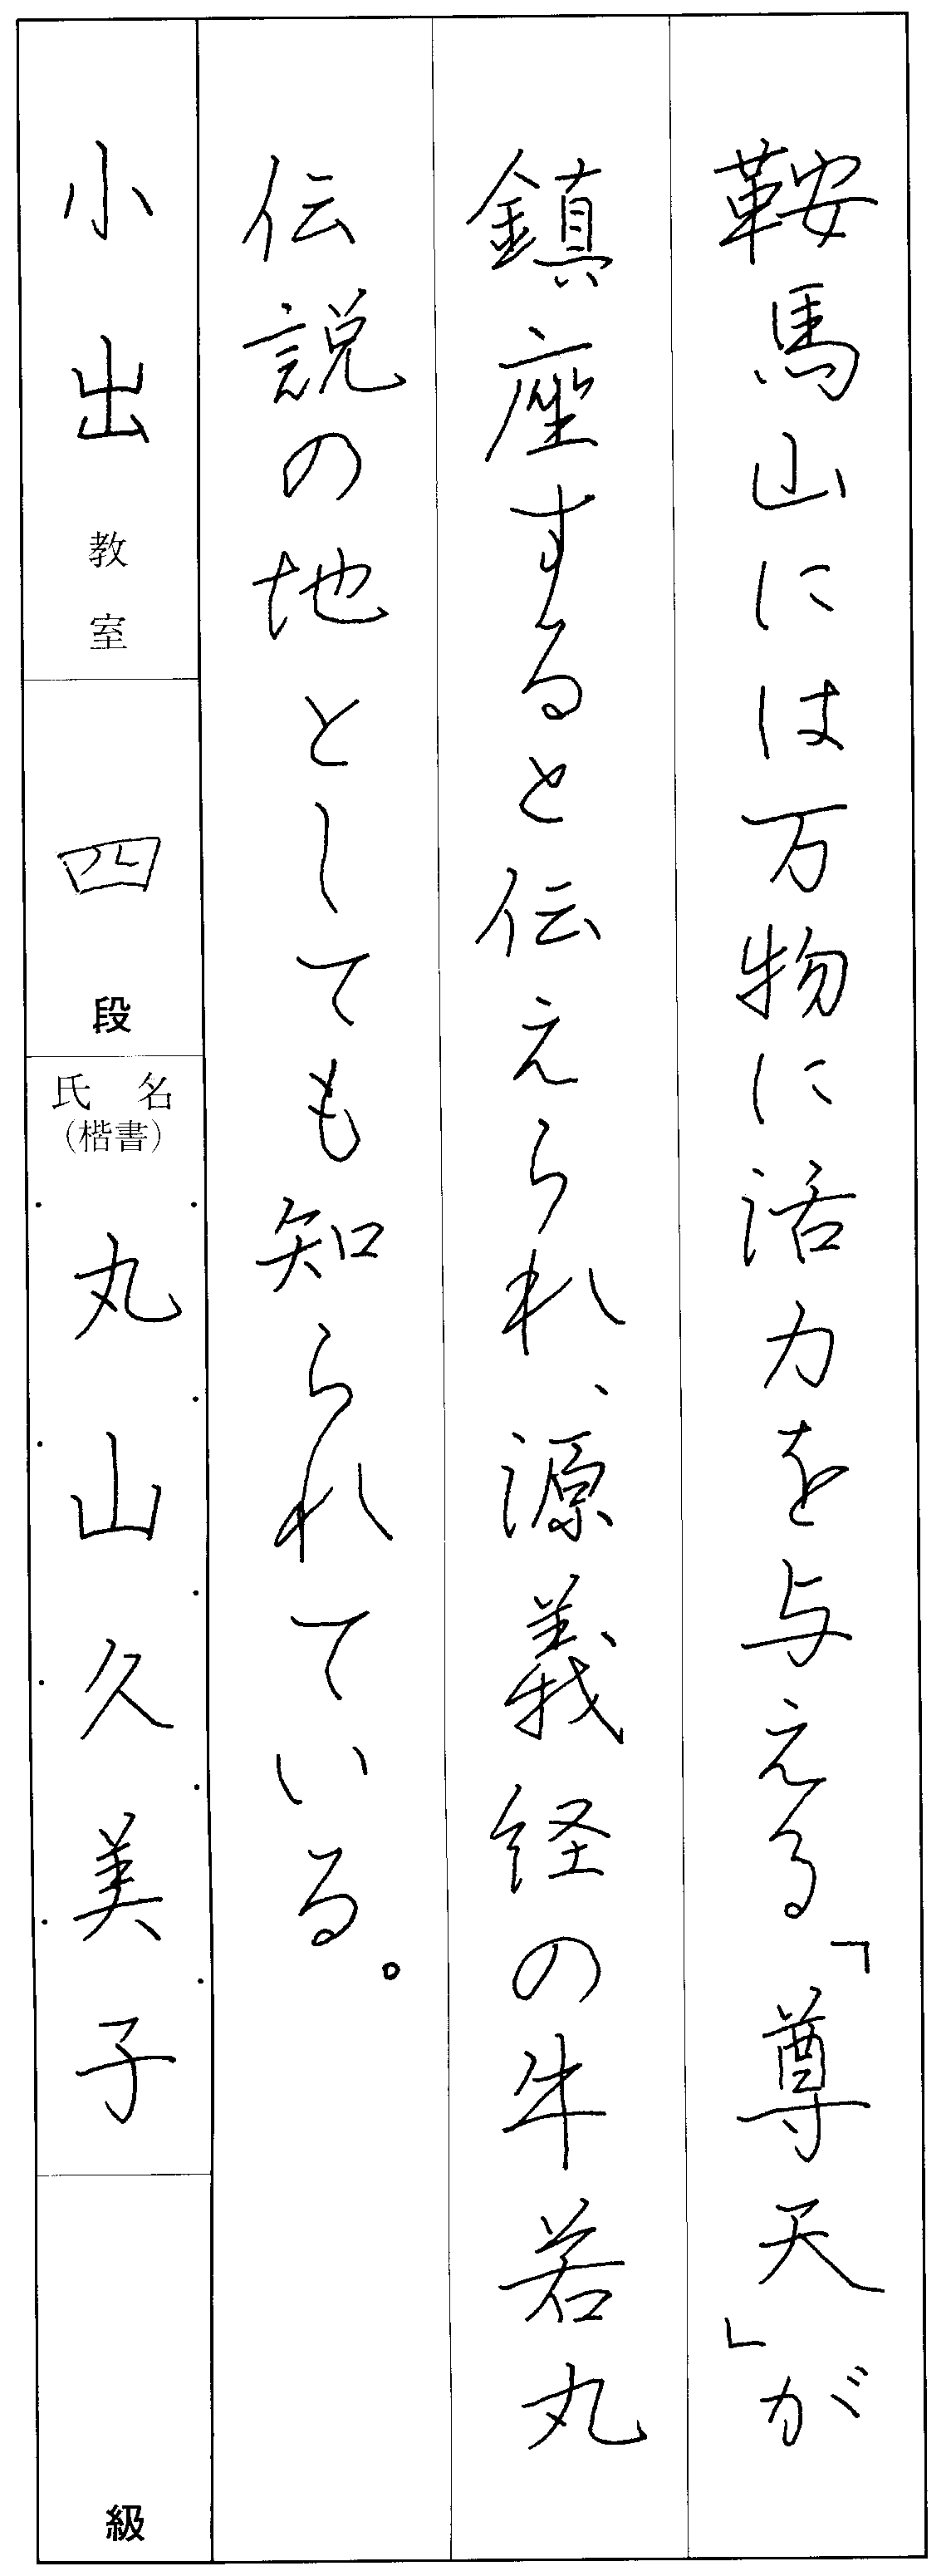 鞍馬山には万物に活力を与える「尊天」が
鎮座すると伝えられ、源義経の牛若丸
伝説の地としても知られている。
小出教室
四段
氏名
（楷書）
丸山久美子
級